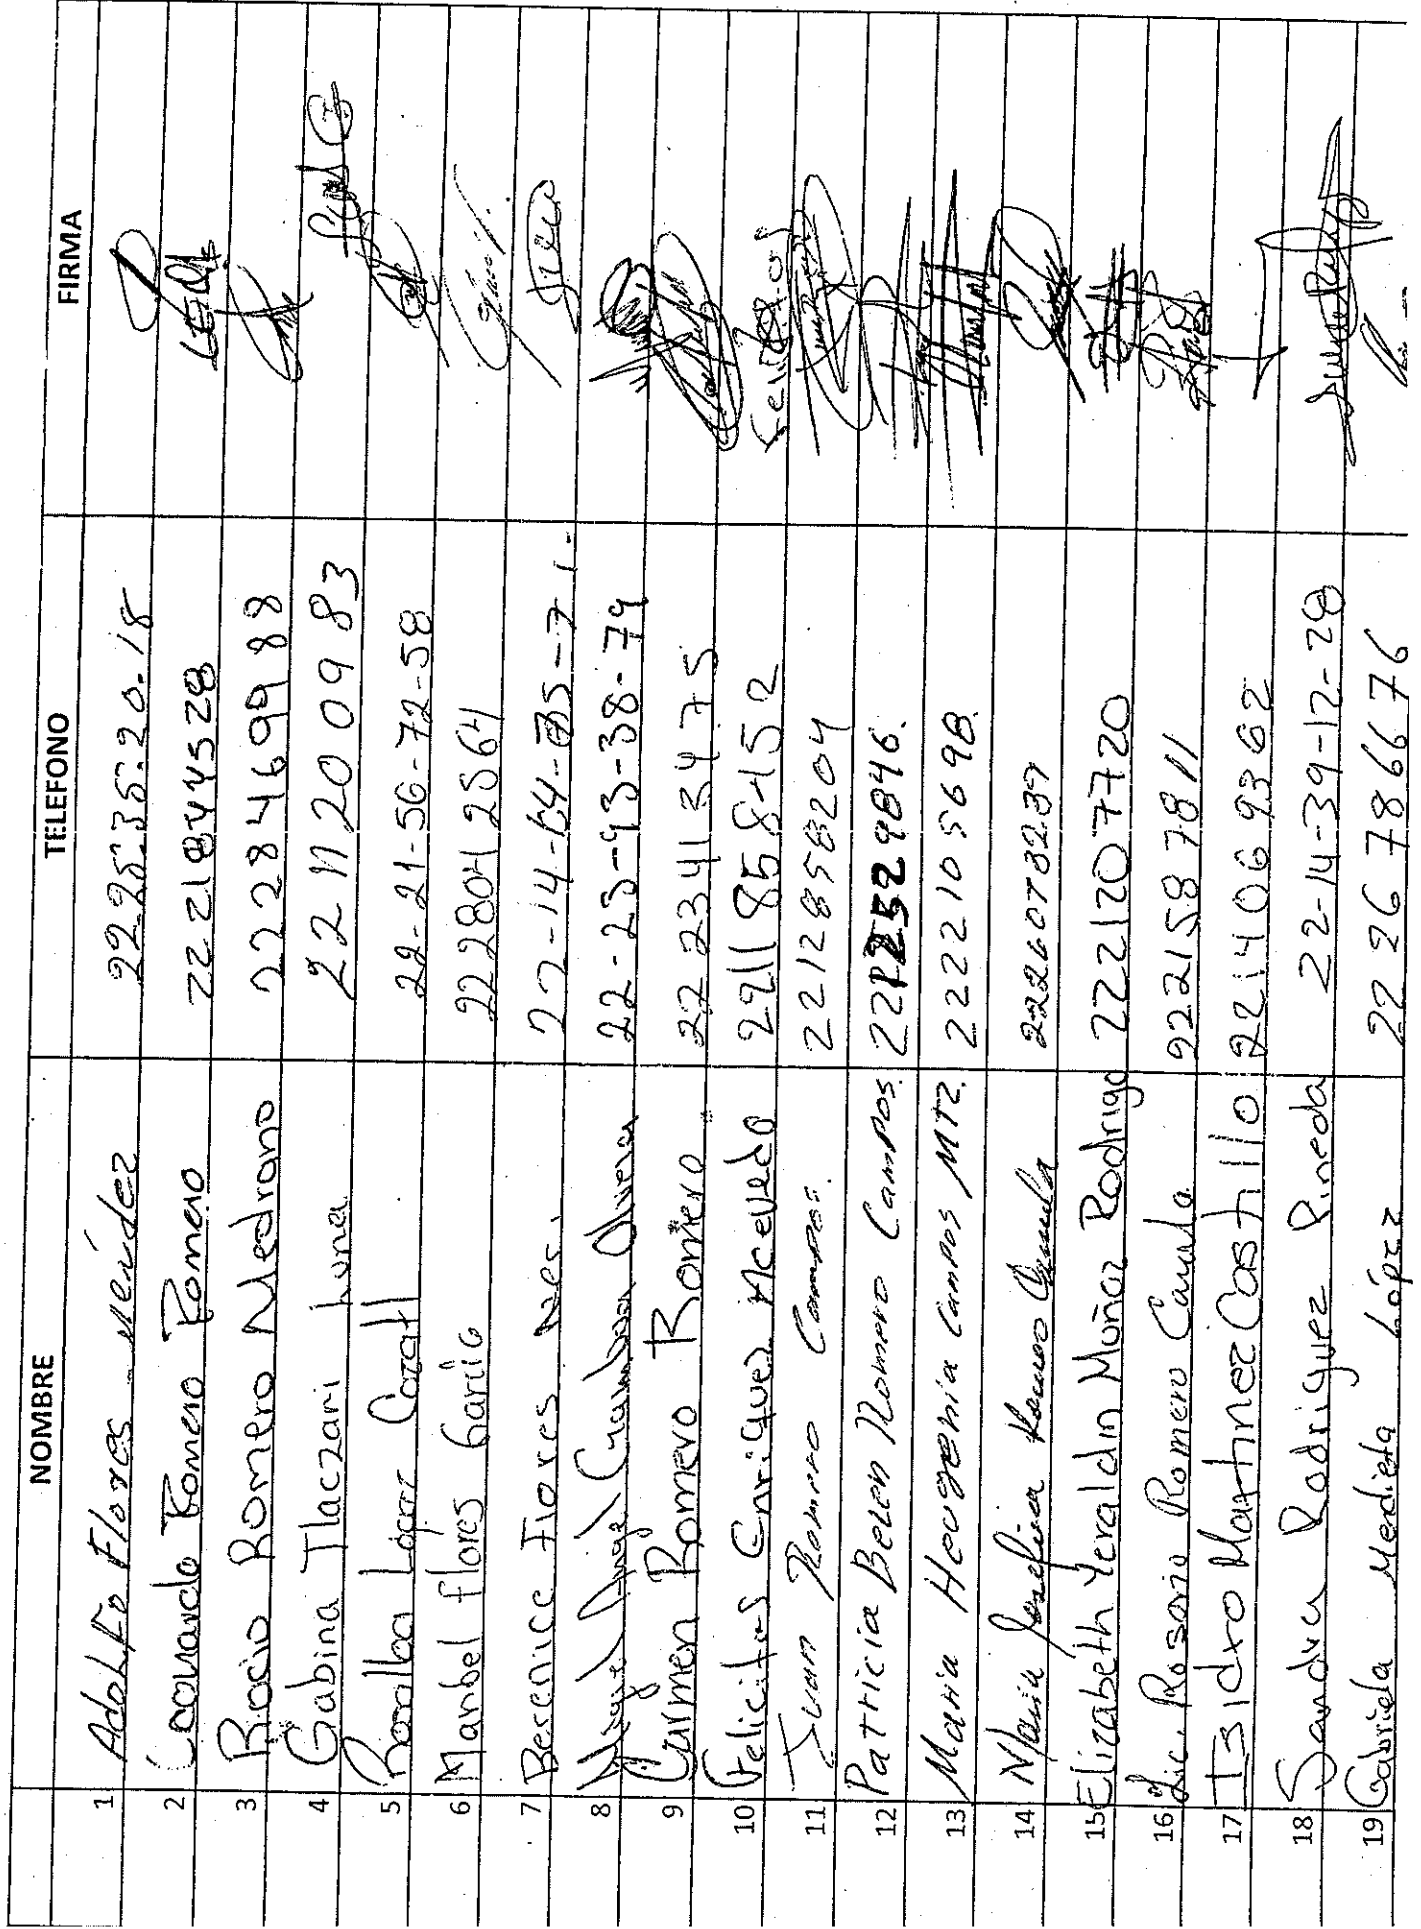 NOMBRE TELEFONO FIRMA
1 Adolfo Flores Meńdez 2225.35.20.18
2 Leonardo Romero Romero 2221844528
3 Rocio Romero Medrano 2228469988
4 Gabina Tlaczani Luna 2211200983
5 Rosalba López Coatl 22-21-56-72-58
6 Maribel flores García 2228042564
7 Berenice Flores 22-14-64-35-71-
8 Miguel Angel Olvera 22-23-93-38-79
9 Carmen Romero Romero 2223413475
10 Felicitas Enriquez Acevedo 2211858452
11 Juan Romero Campos. 2212858204
12 Patricia Belen Romero Campos. 229846.
13 Maria Heugenia Campos MTZ. 2222105698.
14 Maria Josefina Romero 2226078237
15 Elizabeth Yeraldin Muñoz Rodrigo 2221207720
16 Lic. Rosario Romero Camula 2221587811
17 Isidro Martinez Castillo 2214069362
18 Sandra Rodriguez Pineda 22-14-39-12-28
19 Gabriela Mendieta López 2226786676